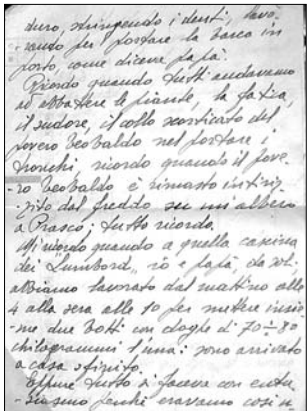 duro, stringendo i denti, lavo-
rando per portare la barca in
porto, come diceva papà.
Ricordo quando tutti andavamo
ad abbattere le piante, la fatica,
il sudore, il collo scorticato del
povero Teobaldo nel portare i
tronchi, ricordo quando il pove-
-ro Teobaldo è rimasto intiriz-
-zito dal freddo su un albero
a Prasco; tutto ricordo.
Mi ricordo quando a quella cascina
dei "Lumbard", io e papà, da soli
abbiamo lavorato dal mattino alle
4 alla sera alle 10 per mettere insie-
-me due botti con doghe di 70÷80
chilogrammi l'una: sono arrivato
a casa sfinito.
Eppure tutto si faceva con entu-
-siasmo perché eravamo così